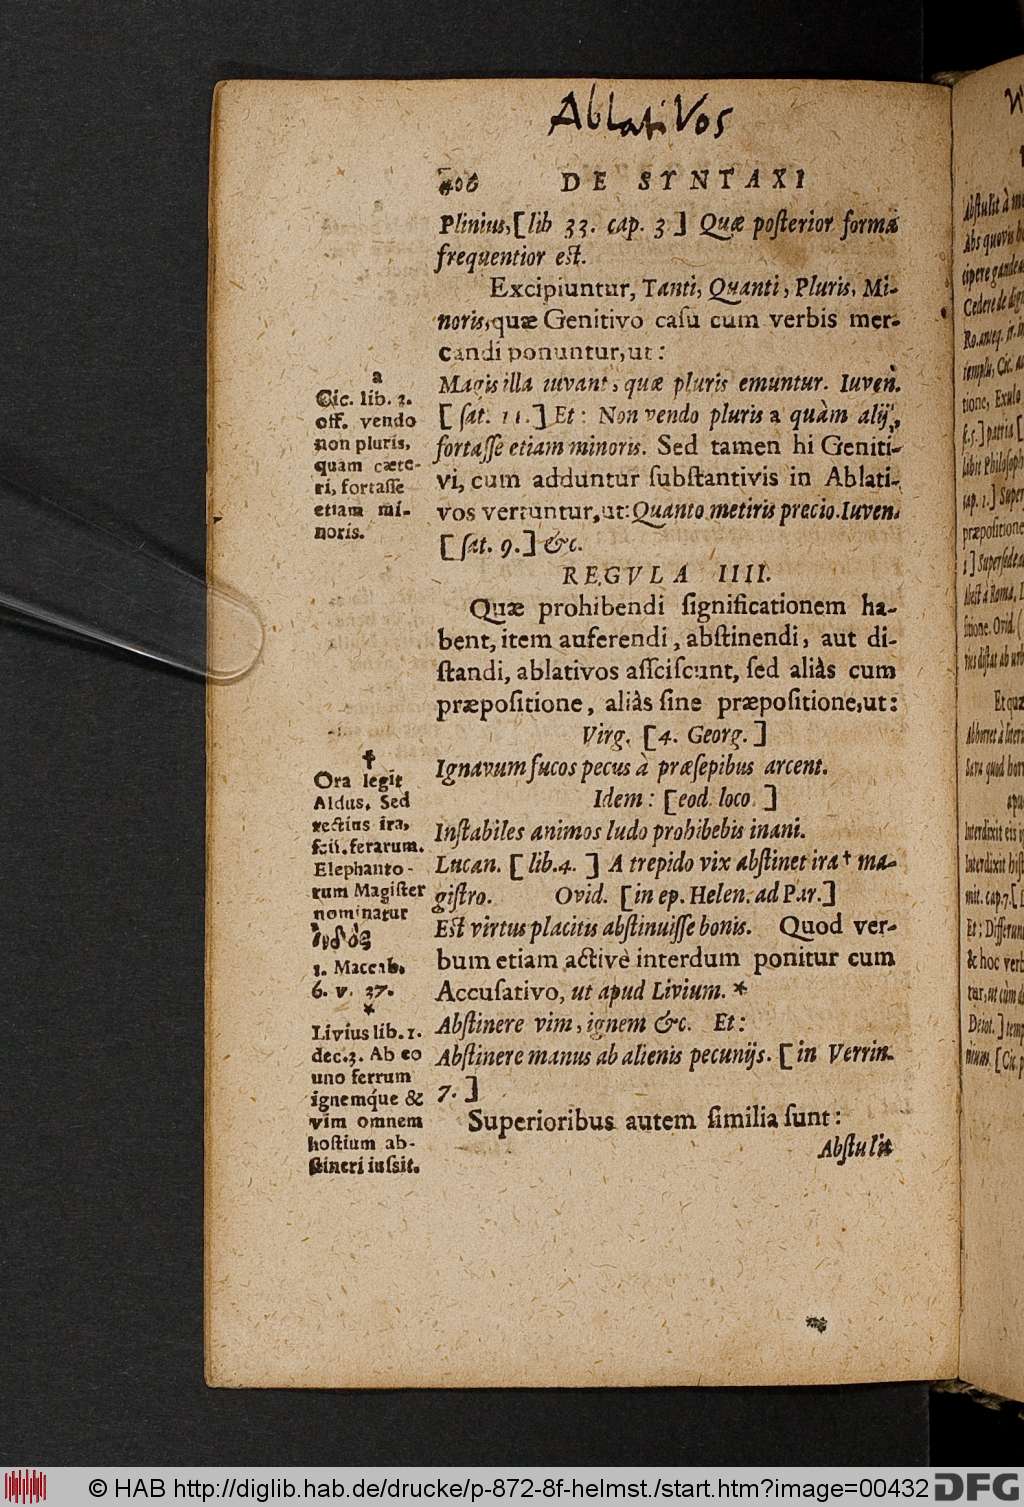 AblatiVos
406 DE SYNTAXI
Plinius, [lib 33. cap. 3] Quæ posterior forma
frequentior est.
Excipiuntur, Tanti, Quanti, Pluris, Mi-
noris, quæ Genitivo casu cum verbis mer-
candi ponuntur, ut:
Magis illa iuvant, quæ pluris emuntur. Iuven.
[sat. 11.] Et: Non vendo pluris a quàm alij,
fortasse etiam minoris. Sed tamen hi Geniti-
vi, cum adduntur substantivis in Ablati-
vos vertuntur, ut: Quanto metiris precio. Iuven.
[sat. 9.] &c.
REGVLA IIII.
Quæ prohibendi significationem ha-
bent, item auferendi, abstinendi, aut di-
standi, ablativos assciscunt, sed aliàs cum
præpositione, aliàs sine præpositione, ut:
Virg. [4. Georg.]
Ignavum fucos pecus à præsepibus arcent.
Idem: [eod. loco.]
Instabiles animos ludo prohibebis inani.
Lucan. [lib. 4.] A trepido vix abstinet ira † ma-
gistro. Ovid. [in ep. Helen. ad Par.]
Est virtus placitis abstinuisse bonis. Quod ver-
bum etiam activè interdum ponitur cum
Accusativo, ut apud Livium. *
Abstinere vim, ignem &c. Et:
Abstinere manus ab alienis pecunijs. [in Verrin.
7.]
Superioribus autem similia sunt:
Abstulit
a
Cic. lib. 2.
off. vendo
non pluris,
quam cæte-
ri, fortasse
etiam mi-
noris.
†
Ora legit
Aldus. Sed
rectius ira,
scil. ferarum.
Elephanto-
rum Magister
nominatur
ἰνδὸς
1. Maccab.
6. v. 37.
*
Livius lib. 1.
dec. 3. Ab eo
uno ferrum
ignemq́ue &
vim omnem
hostium ab-
stineri iussit.
Et quæ
© HAB http://diglib.hab.de/drucke/p-872-8f-helmst./start.htm?image=00432 DFG